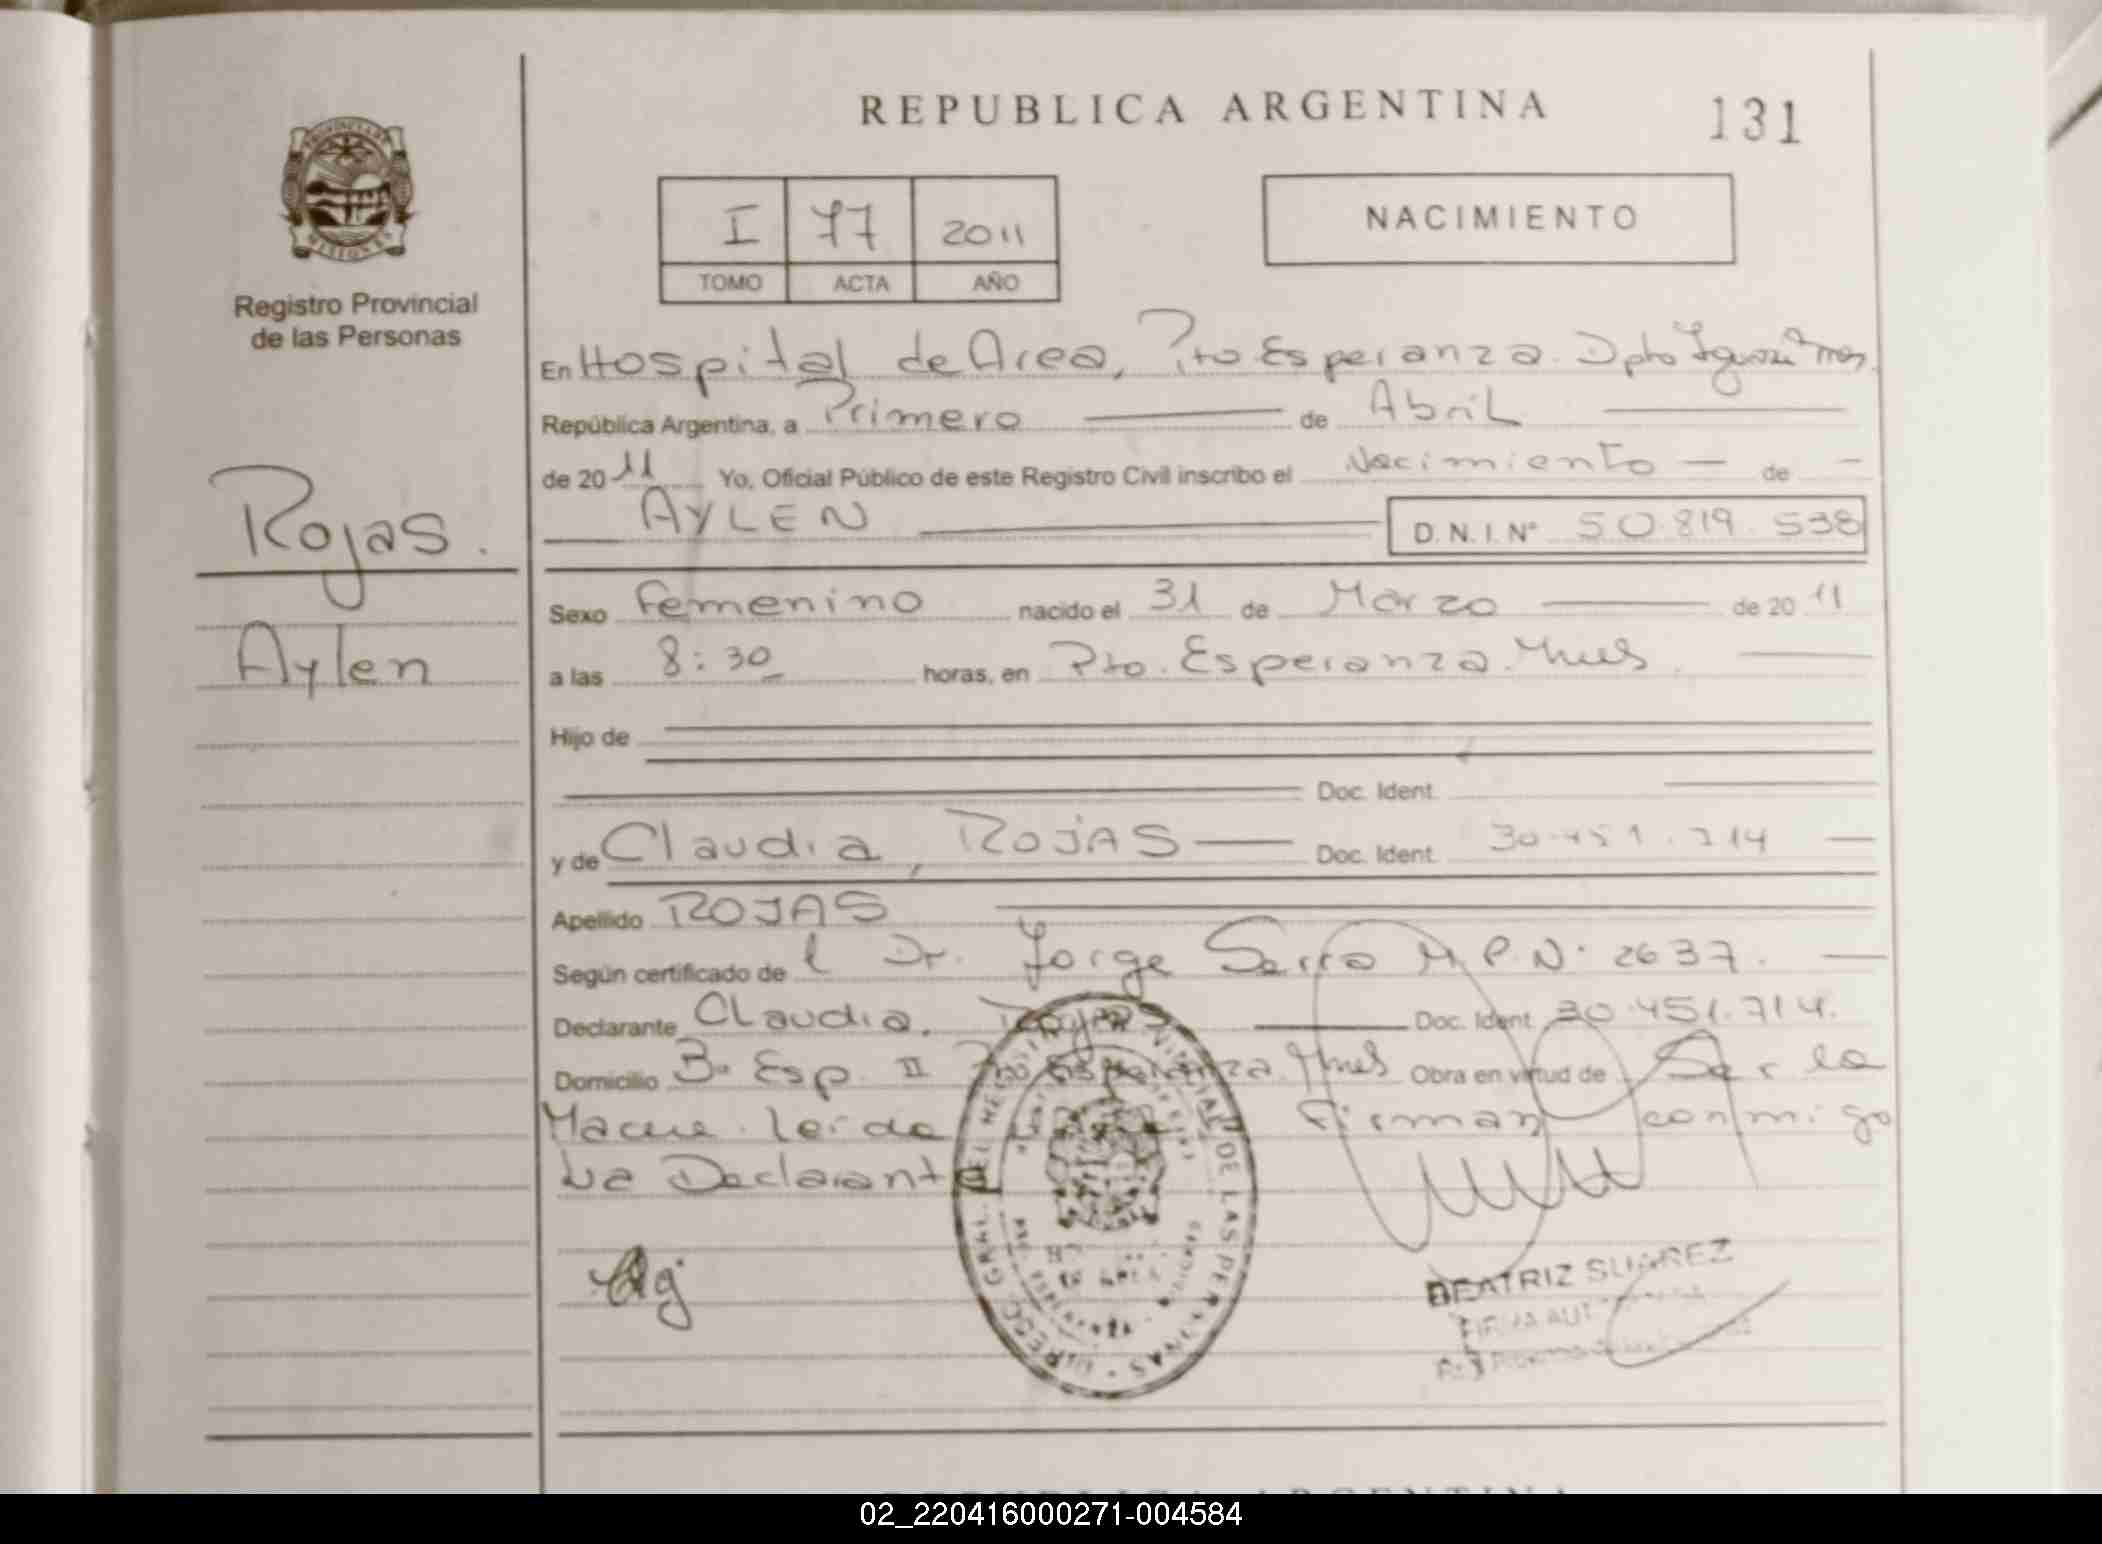 REPUBLICA ARGENTINA
131
I 77 2011
TOMO ACTA AÑO
NACIMIENTO
Registro Provincial
de las Personas
En Hospital de Area, Pto Esperanza. Dpto Iguazú Mnes.
República Argentina, a Primero de Abril
de 2011 Yo, Oficial Público de este Registro Civil inscribo el Nacimiento de
AYLEN D.N.I.Nº 50.819.538
Rojas.
Aylen
Sexo Femenino nacido el 31 de Marzo de 2011
a las 8:30 horas, en Pto. Esperanza. Mnes.
Hijo de
Doc. Ident.
y de Claudia, ROJAS Doc. Ident.
Apellido ROJAS
Según certificado de l Dr. Jorge M.P.Nº 2637.
Declarante Claudia. Rojas Doc. Ident. 30.451.714.
Domicilio Bº Esp. II Pto Esperanza. Mnes Obra en virtud de Ser la
Madre. Leída Firman conmigo
La Declarante
DE LAS PERSONAS
BEATRIZ SUAREZ
02_220416000271-004584